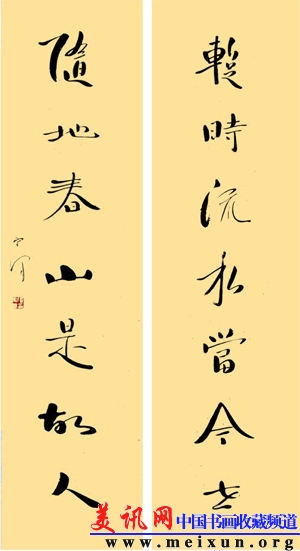 暫時流水當今世
隨地春山是故人
美讯网 中国书画收藏频道
www.meixun.org